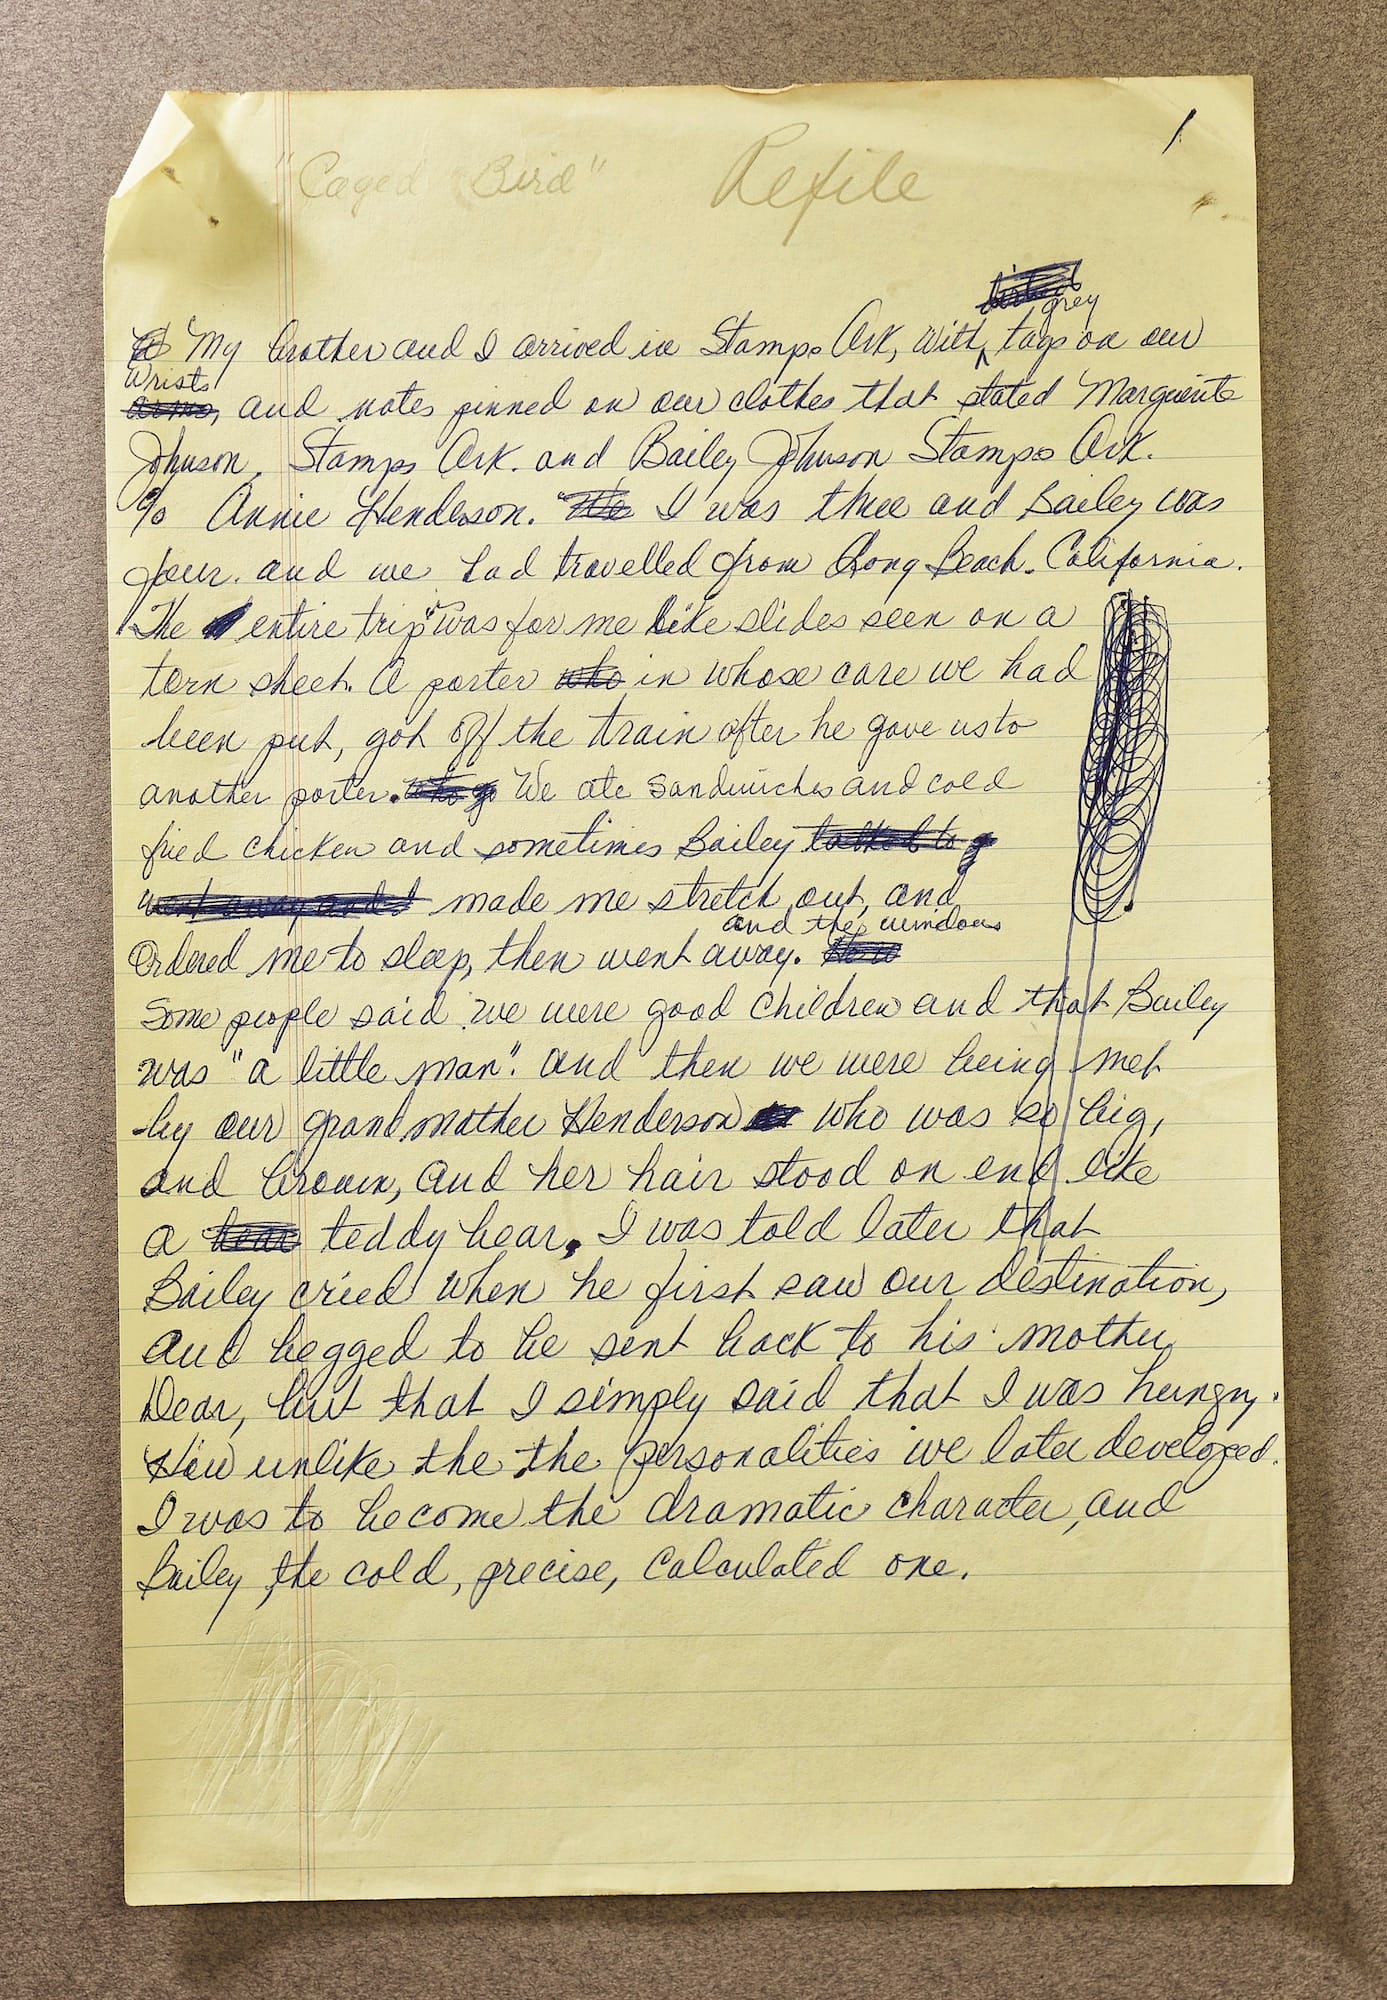 1
"Caged Bird" Refile
grey
My brother and I arrived in Stamps Ark, with tags on our
wrists
arms, and notes pinned on our clothes that stated Marguerite
Johnson, Stamps Ark. and Bailey Johnson Stamps Ark.
c/o Annie Henderson. We I was three and Bailey was
four. and we had travelled from Long Beach. California.
The entire trip was for me like slides seen on a
torn sheet. A porter who in whose care we had
been put, got off the train after he gave us to
another porter. who We ate sandwiches and cold
fried chicken and sometimes Bailey talked to
went away and I made me stretch out, and
and the windows
ordered me to sleep, then went away.
Some people said we were good children and that Bailey
was "a little man". and then we were being met
by our grandmother Henderson who was so big,
and brown, and her hair stood on end like
a bear teddy bear. I was told later that
Bailey cried when he first saw our destination,
and begged to be sent back to his mother
Dear, but that I simply said that I was hungry.
How unlike the the personalities we later developed.
I was to become the dramatic character, and
Bailey, the cold, precise, calculated one.